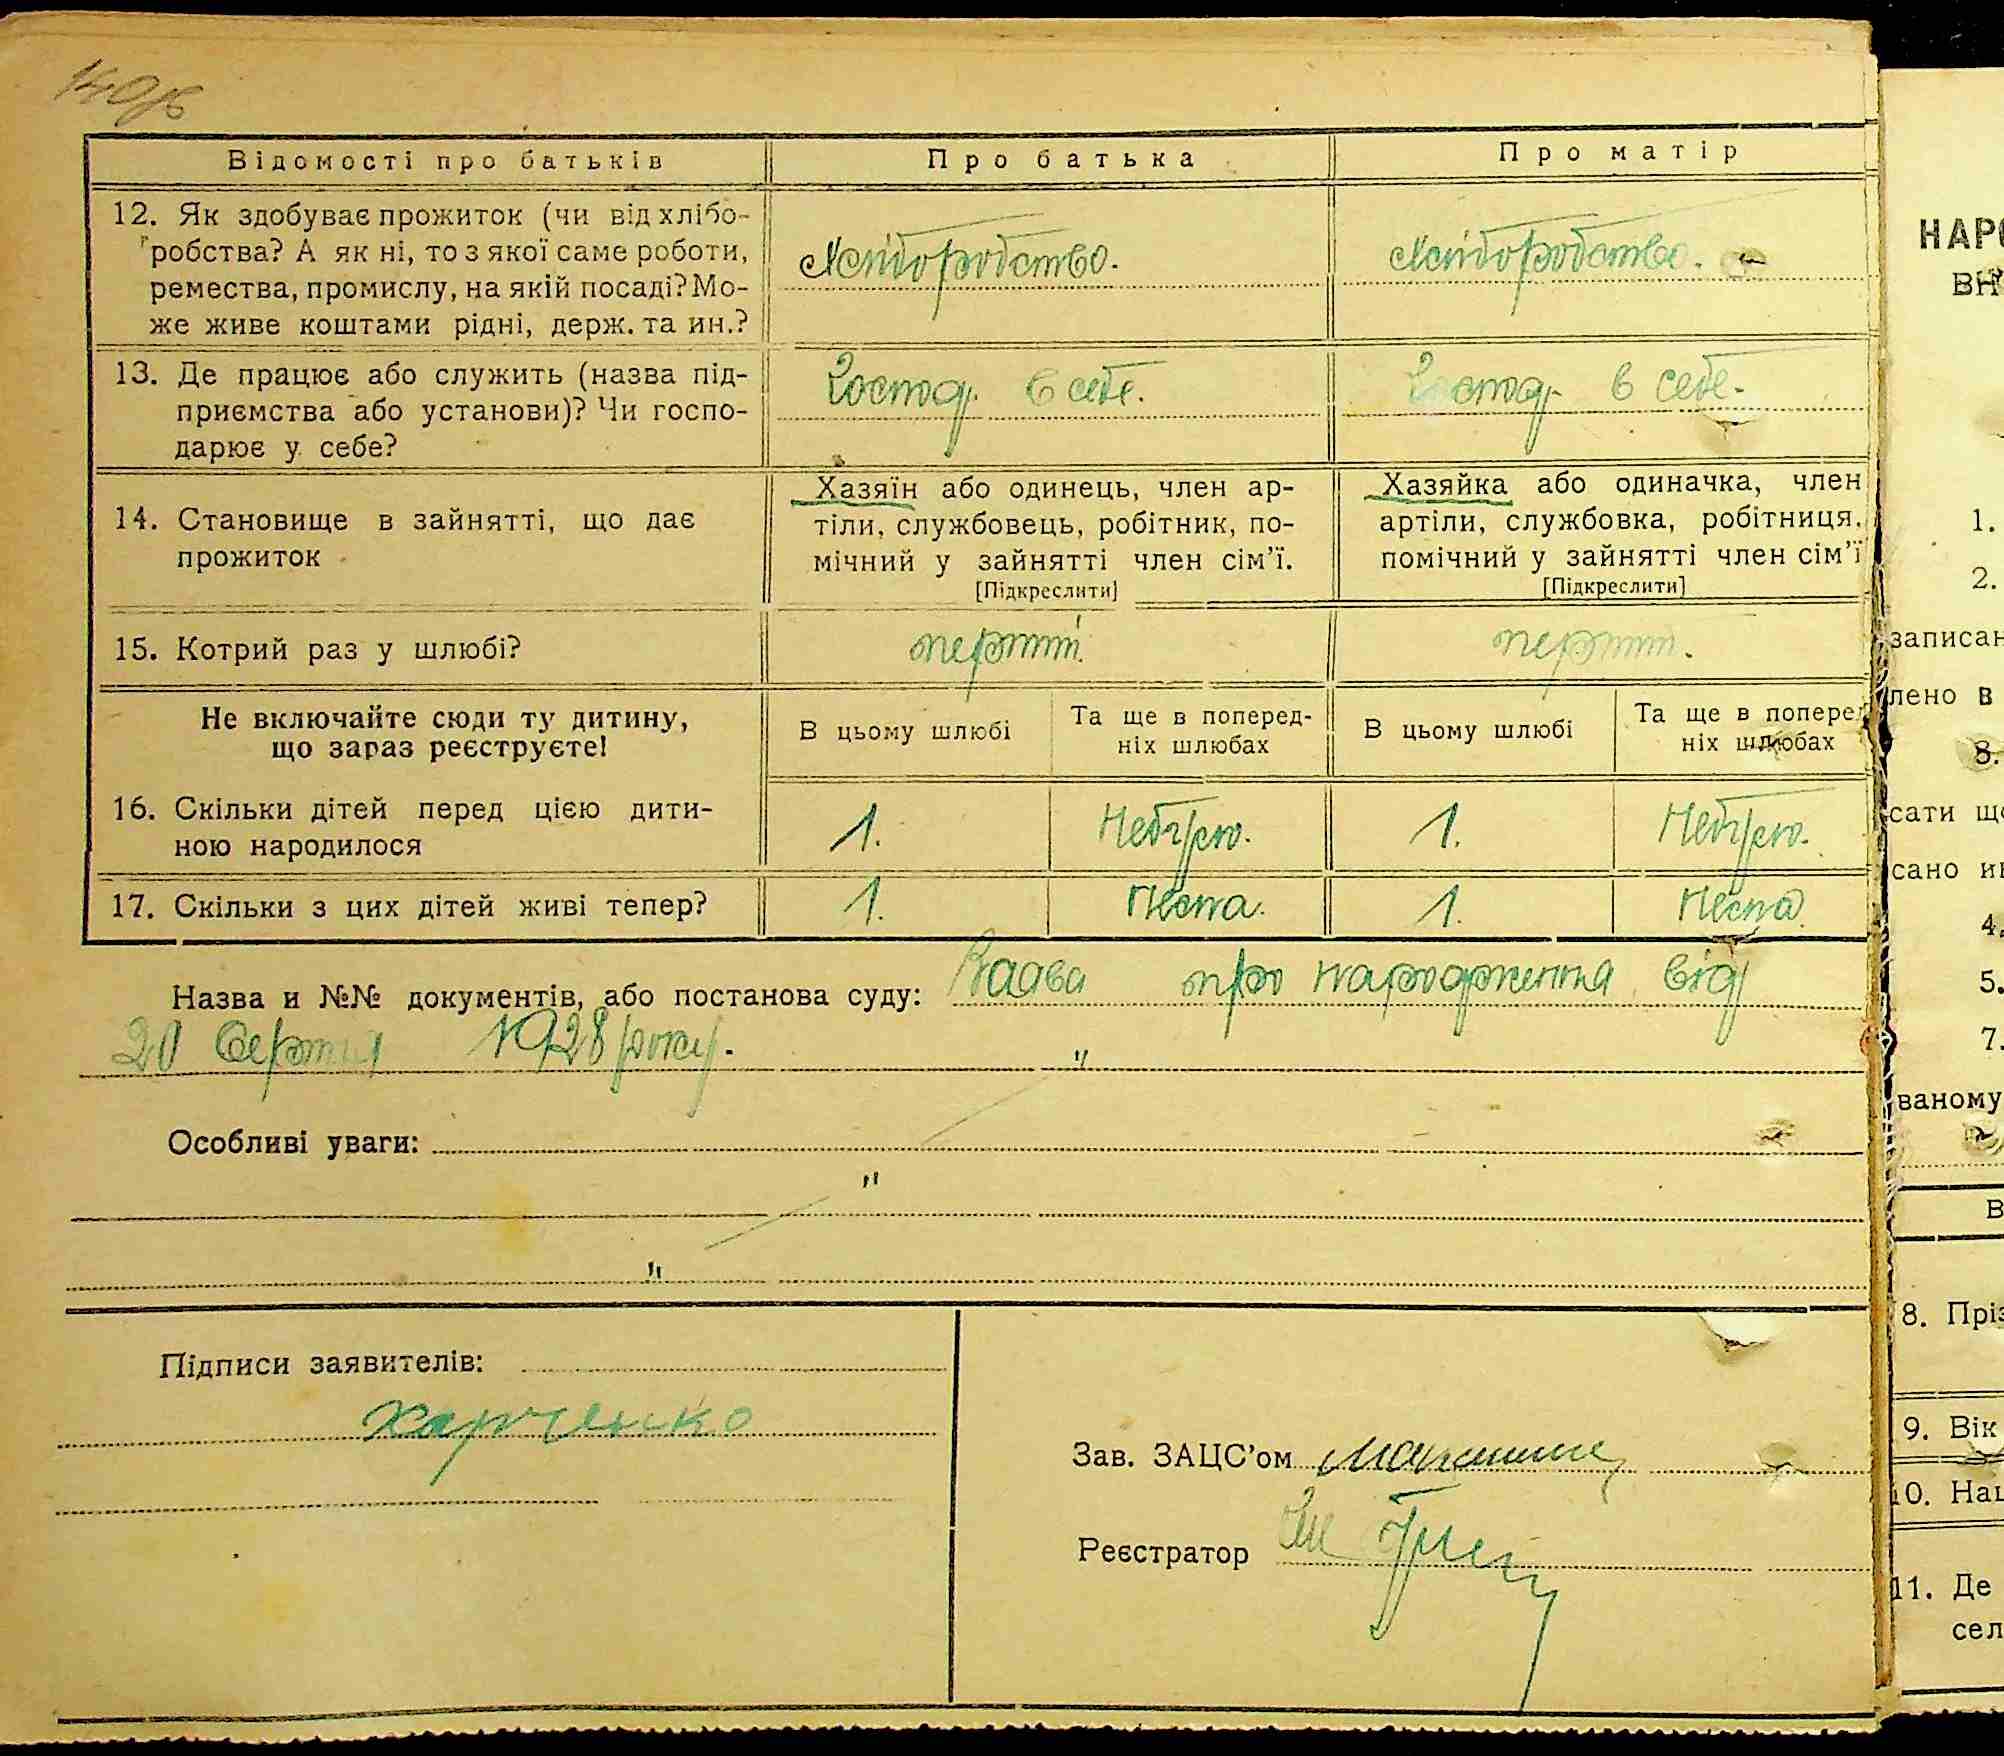 140зв
Відомості про батьків
Про батька
Про матір
12. Як здобуває прожиток (чи від хлібо-
робства? А як ні, то з якої саме роботи,
ремества, промислу, на якій посаді? Мо-
же живе коштами рідні, держ. та ин.?
Хліборобство.
Хліборобство.
13. Де працює або служить (назва під-
приємства або установи)? Чи госпо-
дарює у себе?
Господ. в себе.
Господ. в себе.
14. Становище в зайнятті, що дає
прожиток
Хазяїн або одинець, член ар-
тіли, службовець, робітник, по-
мічний у зайнятті член сім’ї.
[Підкреслити]
Хазяйка або одиначка, член
артіли, службовка, робітниця,
помічний у зайнятті член сім’ї
[Підкреслити]
15. Котрий раз у шлюбі?
перший.
перший.
Не включайте сюди ту дитину,
що зараз реєструєте!
В цьому шлюбі
Та ще в поперед-
ніх шлюбах
В цьому шлюбі
Та ще в поперед
ніх шлюбах
16. Скільки дітей перед цією дити-
ною народилося
1.
Небуло.
1.
Небуло.
17. Скільки з цих дітей живі тепер?
1.
Нема.
1.
Нема
Назва и №№ документів, або постанова суду: Заява про народження від
20 Серпня 1928 року.
"
Особливі уваги:
"
"
Підписи заявителів:
Харченко
Зав. ЗАЦС’ом
Реєстратор
НАРО
ВН
1.
2.
записан
лено в
3.
сати що
сано ин
4.
5.
7.
ваному
В
8. Пріз
9. Вік
10. Нац
11. Де
сел